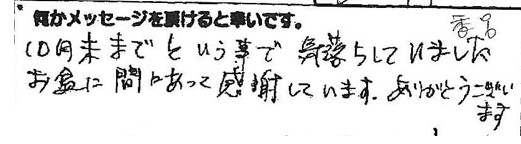 何かメッセージを頂けると幸いです。
香名
10月末までという事で気落ちしていました
お盆に間にあって感謝しています。ありがとうござい
ます